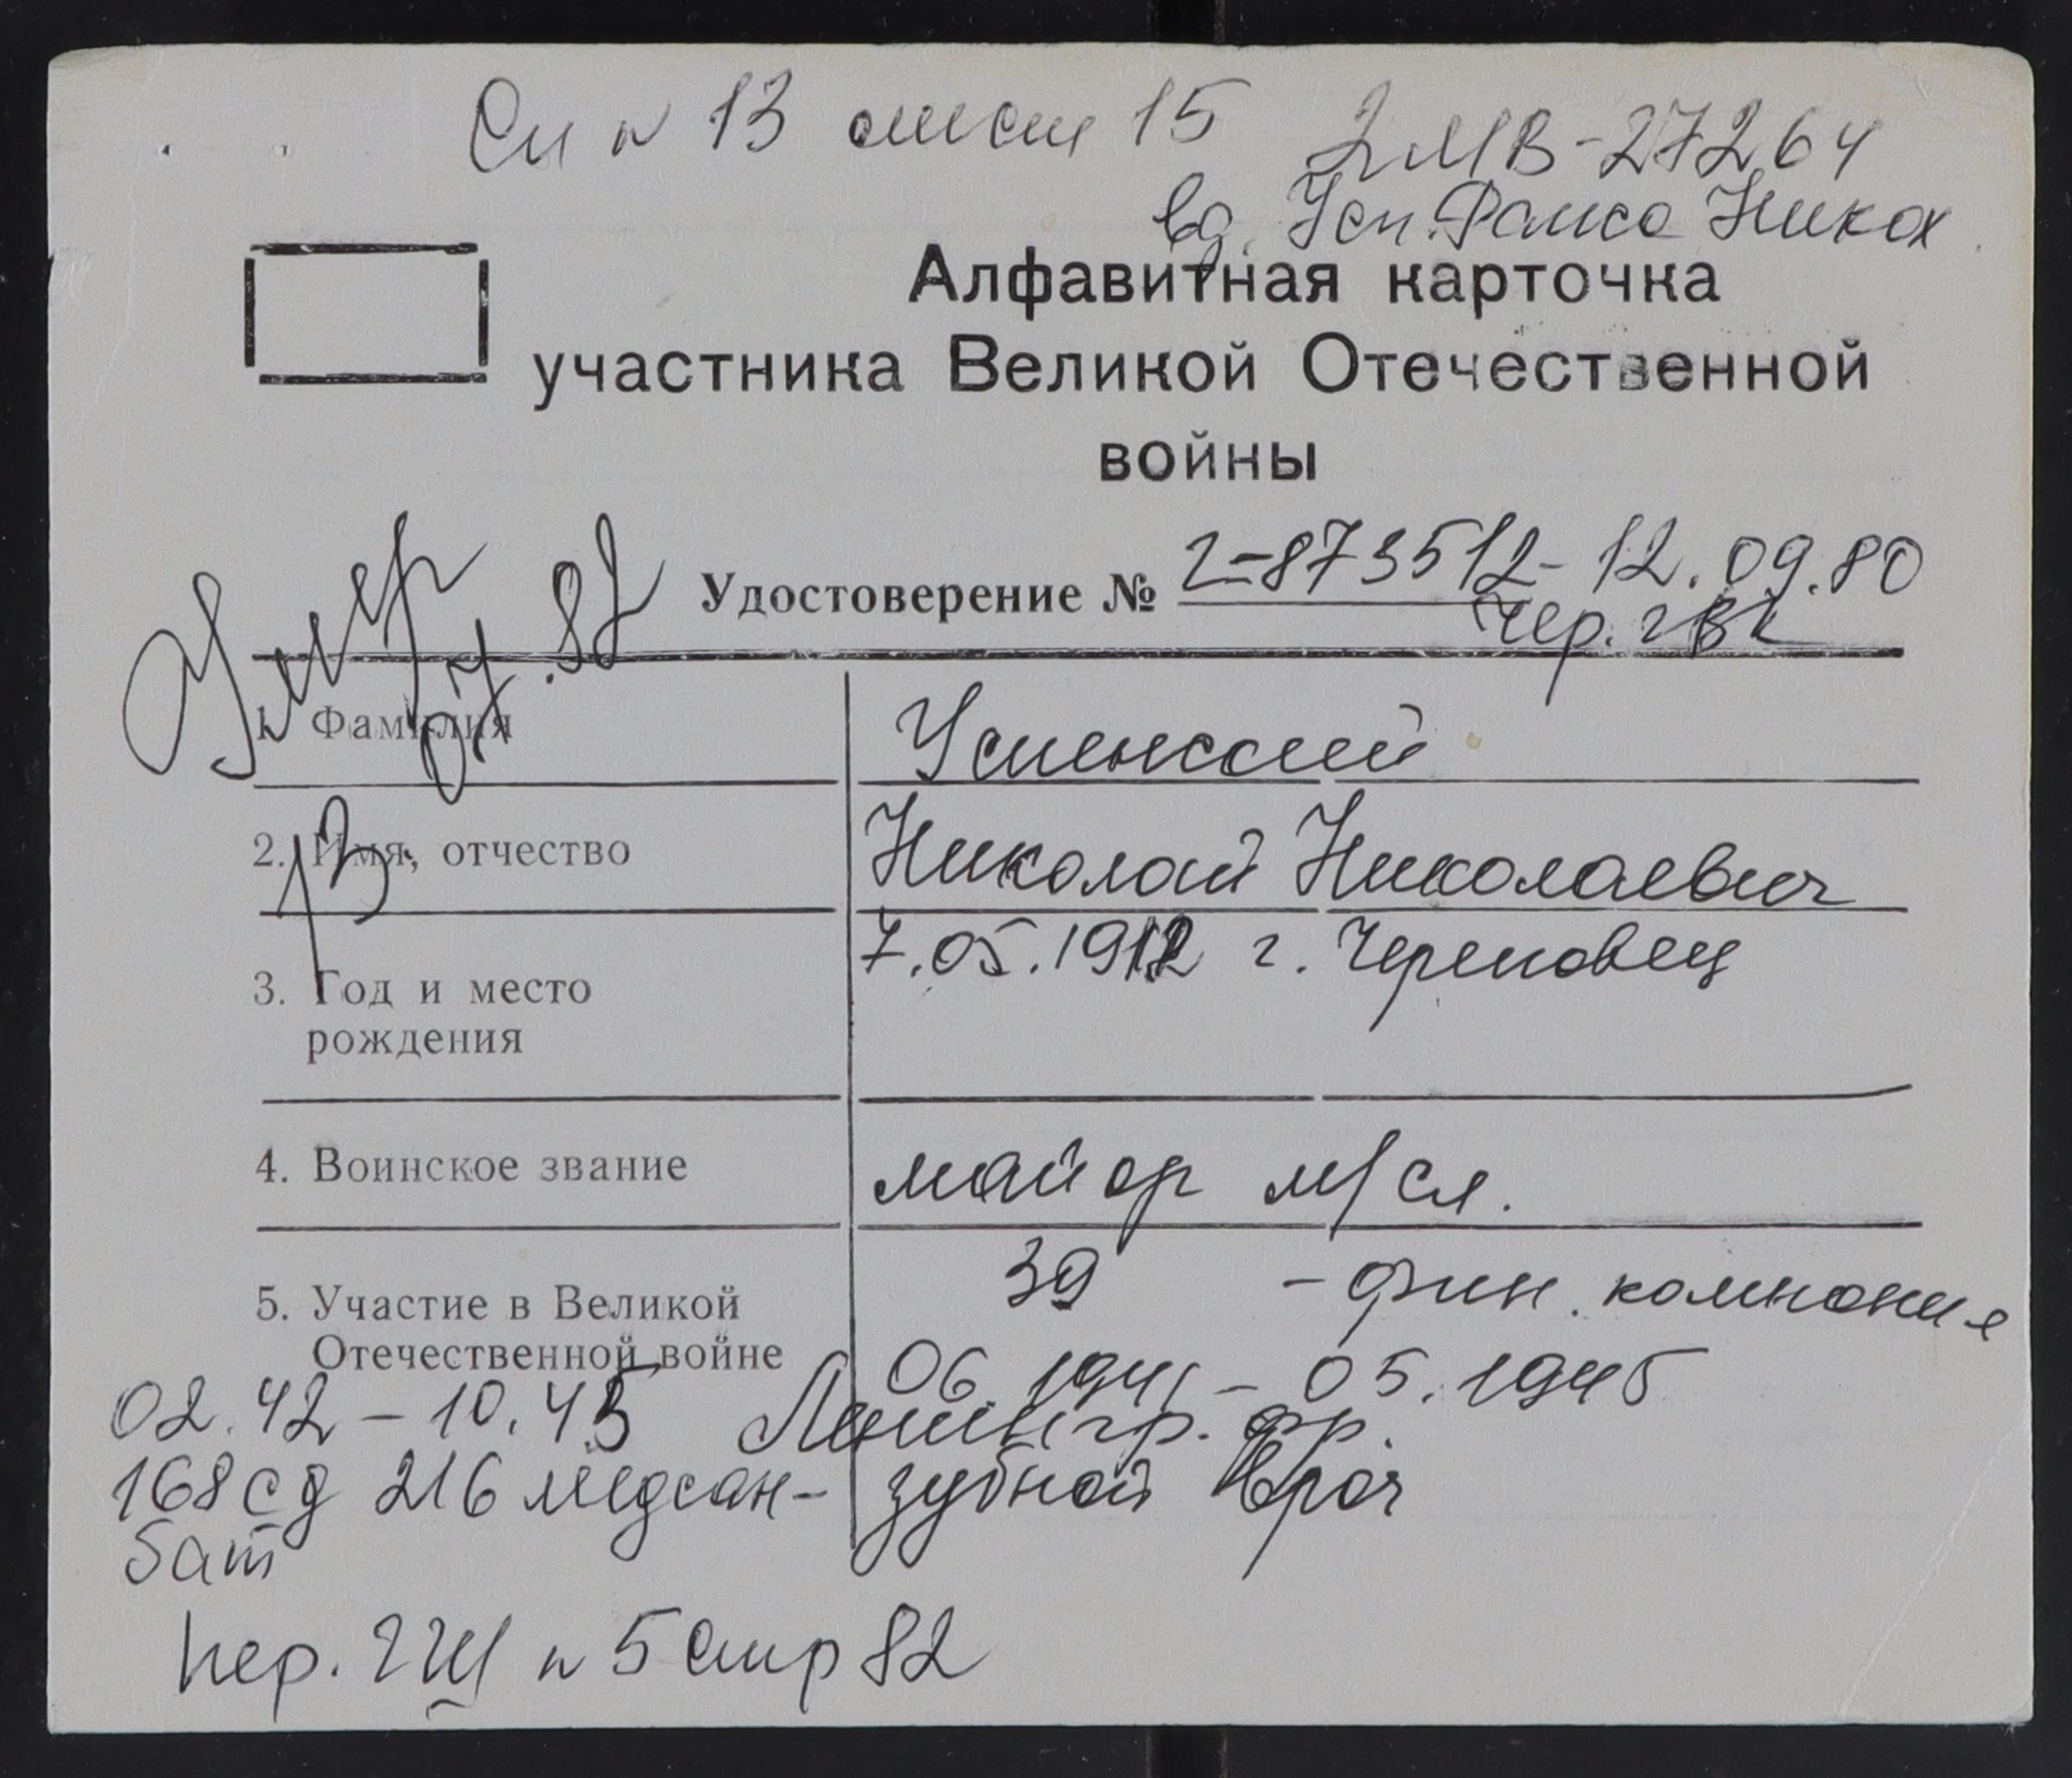 Сп № 13 лист 15
2МВ-27264
вд. Усп. Раиса Никол
Алфавитная карточка
участника Великой Отечественной
войны
Умер
07.87
Удостоверение № Г-873512-12.09.80
Чер. ГВК
1. Фамилия Успенский
2. Имя, отчество Николай Николаевич
3. Год и место 7.05.1912 г. Череповец
рождения
4. Воинское звание майор м/сл.
5. Участие в Великой 39 - фин. компания
Отечественной войне 06.1941 - 05.1945
02.42 - 10.45 Ленингр. фр.
168 сд 216 медсан- зубной врач
бат
пер. ГШ № 5 стр 82